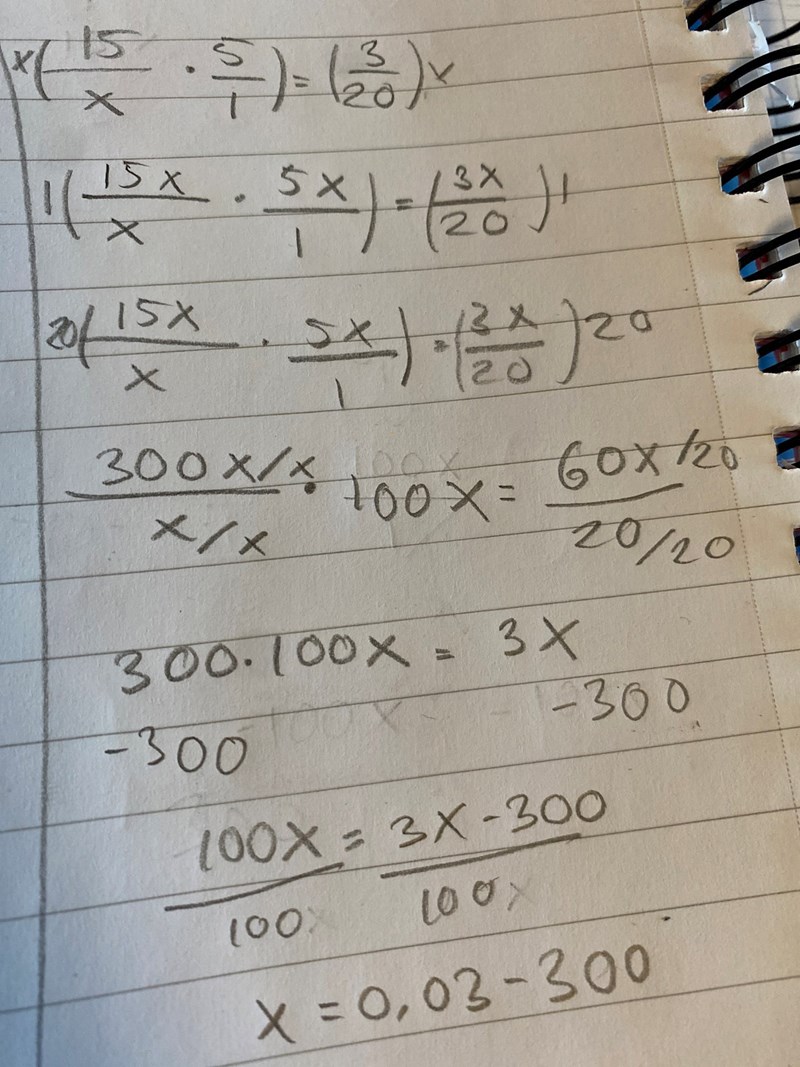 x(15/x · 5/1) = (3/20)x
1(15x/x · 5x/1) = (3x/20)1
20(15x/x · 5x/1) = (3x/20)20
300x/x / x/x · 100x = 60x/20 / 20/20
300 · 100x = 3x
-300 -300
100x/100 = 3x-300/100
x = 0,03-300